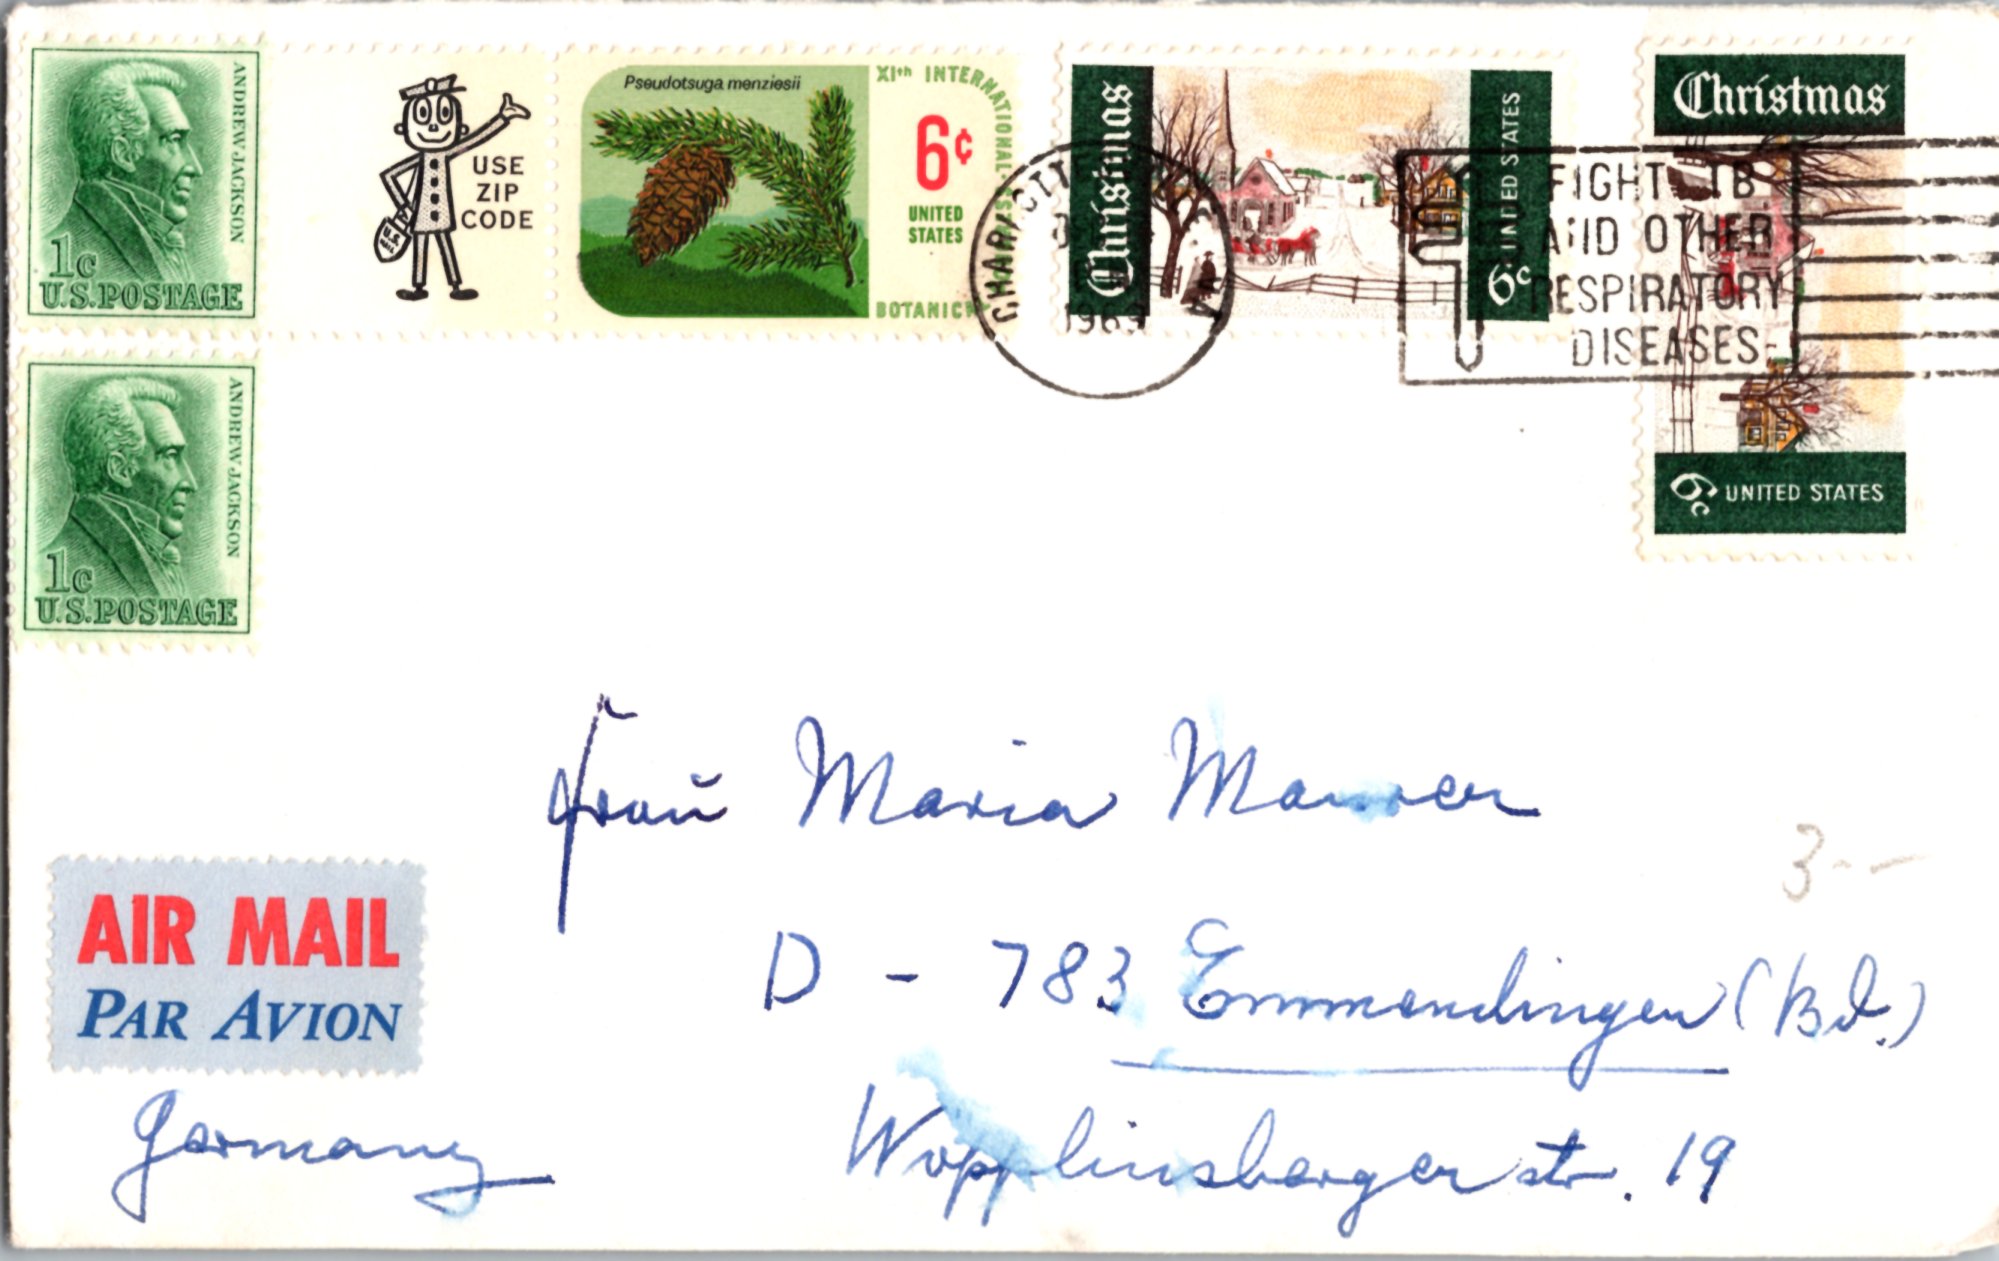 ANDREW JACKSON
1c
U.S.POSTAGE
U.S.
USE
ZIP
CODE
Pseudotsuga menziesii
XIth INTERNATIONAL
BOTANICAL
6¢
UNITED
STATES
1969
Christmas
UNITED STATES
6c
Christmas
6c UNITED STATES
FIGHT TB
AND OTHER
RESPIRATORY
DISEASES
ANDREW JACKSON
1c
U.S.POSTAGE
Frau Maria Maurer
3.--
AIR MAIL
PAR AVION
D - 783 Emmendingen (Bd.)
Germany
Wopplinsbergerstr. 19